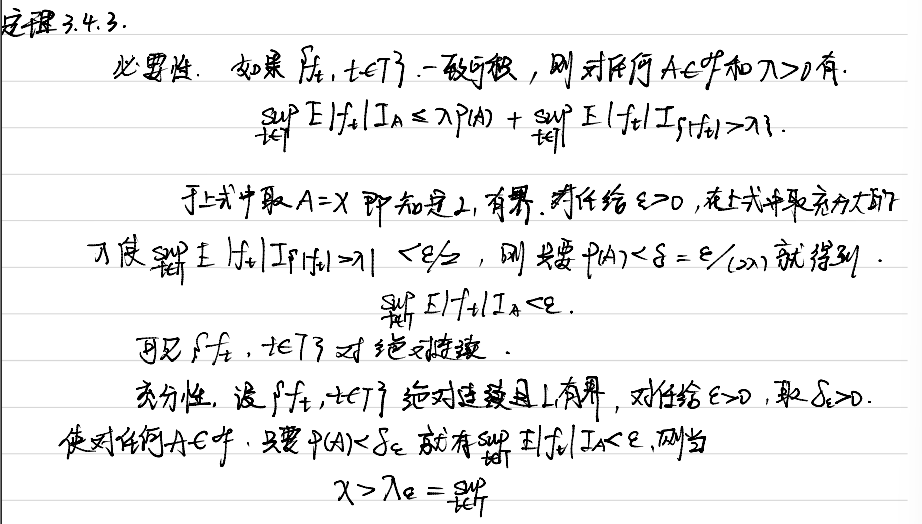 定理3.4.3.
必要性. 如果 {f_t, t∈T} 一致可积, 则对任何 A∈𝓕 和 λ>0 有.
sup_{t∈T} E|f_t|I_A ≤ λP(A) + sup_{t∈T} E|f_t|I_{|f_t|>λ}.
于上式中取 A=X 即知是 L₁ 有界. 对任给 ε>0, 在上式中取充分大的
λ 使 sup_{t∈T} E|f_t|I_{|f_t|>λ} <ε/2, 则只要 P(A)<δ=ε/(2λ) 就得到.
sup_{t∈T} E|f_t|I_A<ε.
可见 {f_t, t∈T} 对绝对连续.
充分性. 设 {f_t, t∈T} 绝对连续且 L₁有界, 对任给 ε>0, 取 δ_ε>0.
使对任何 A∈𝓕, 只要 P(A)<δ_ε 就有 sup_{t∈T} E|f_t|I_A<ε. 则当
λ>λ_ε = sup_{t∈T}